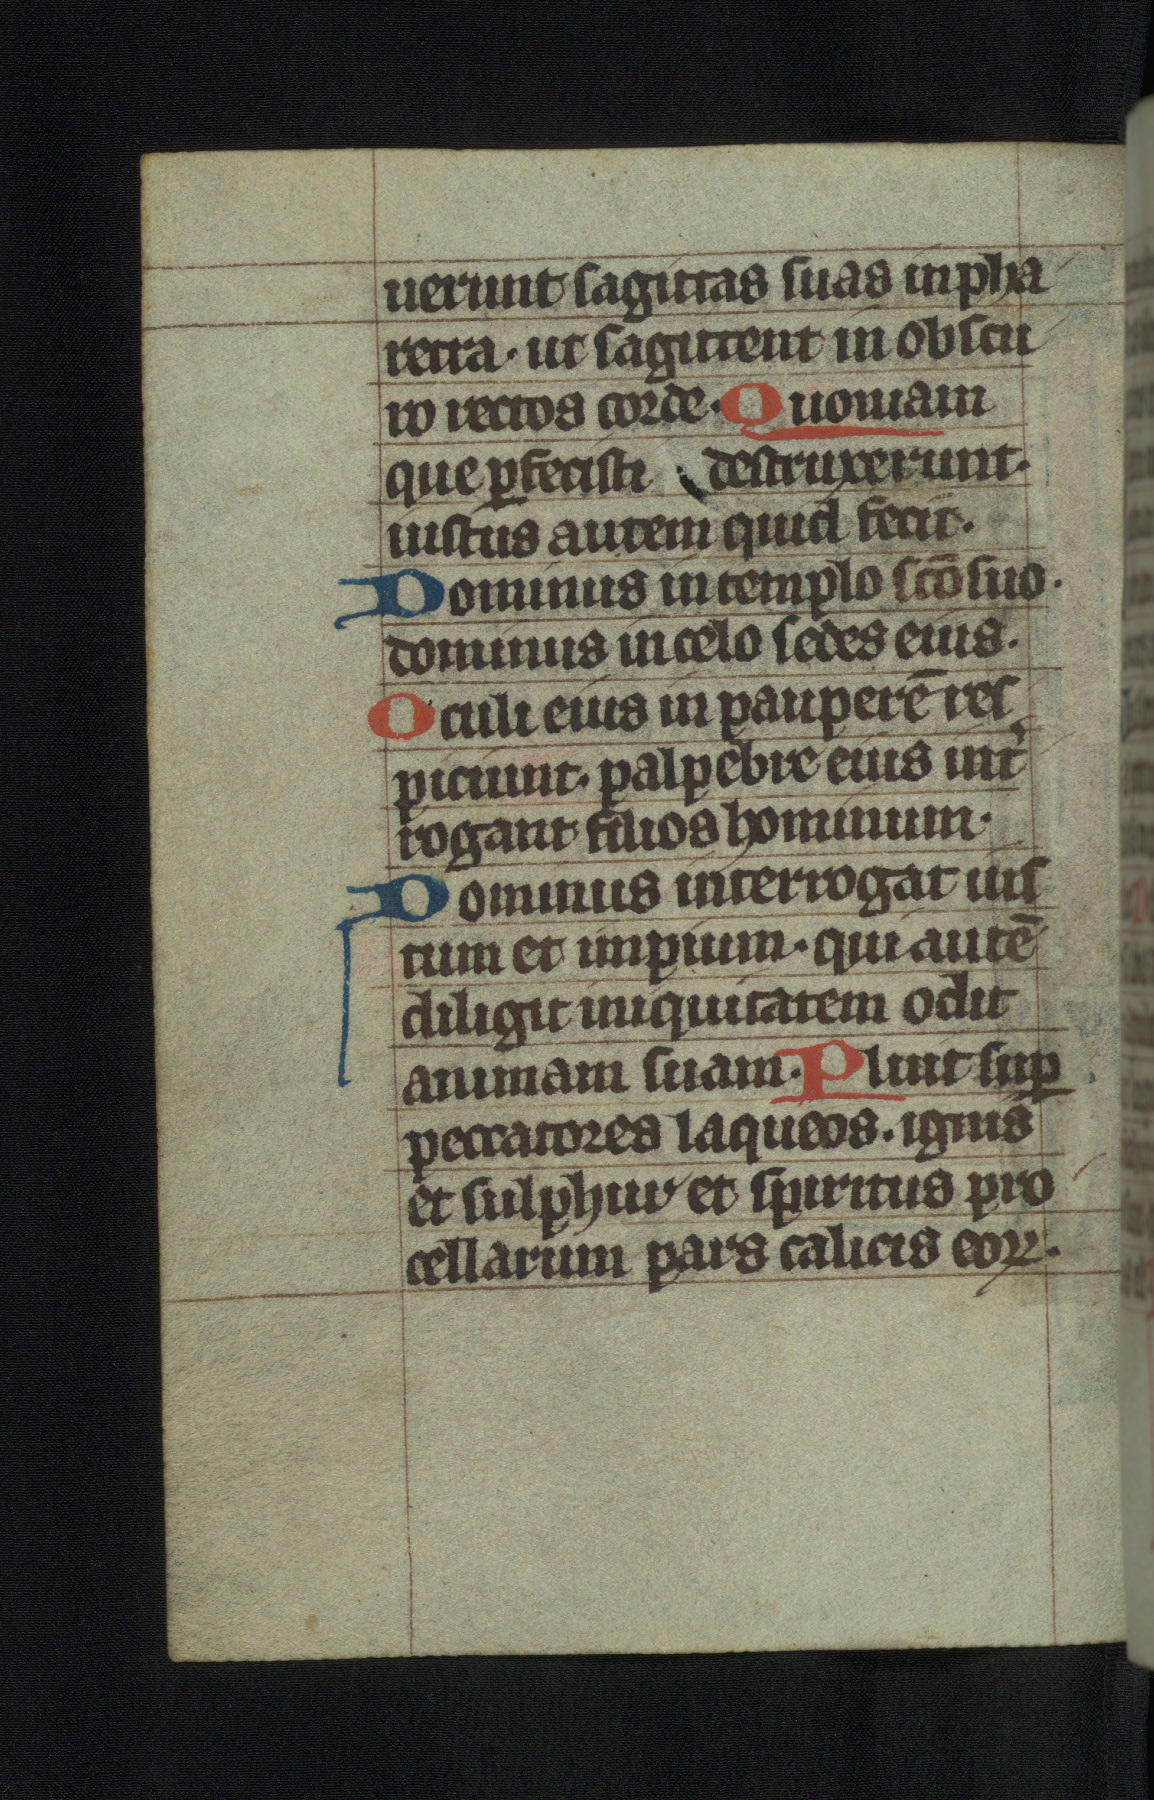 uerunt sagittas suas in pha
retra · ut sagittent in obscu
ro rectos corde · Quoniam
que ꝑfecisti destruxerunt ·
iustus autem quid fecit .
Dominus in templo scō suo ·
dominus in celo sedes eius .
Oculi eius in pauperē res
piciunt · palpebre eius int̉
rogant filios hominum ·
Dominus interrogat ius
tum et impium · qui autē
diligit iniquitatem odit
animam suam · Pluit suꝑ
peccatores laqueos . ignis
et sulphur et spiritus pro
cellarum pars calicis eoꝝ .